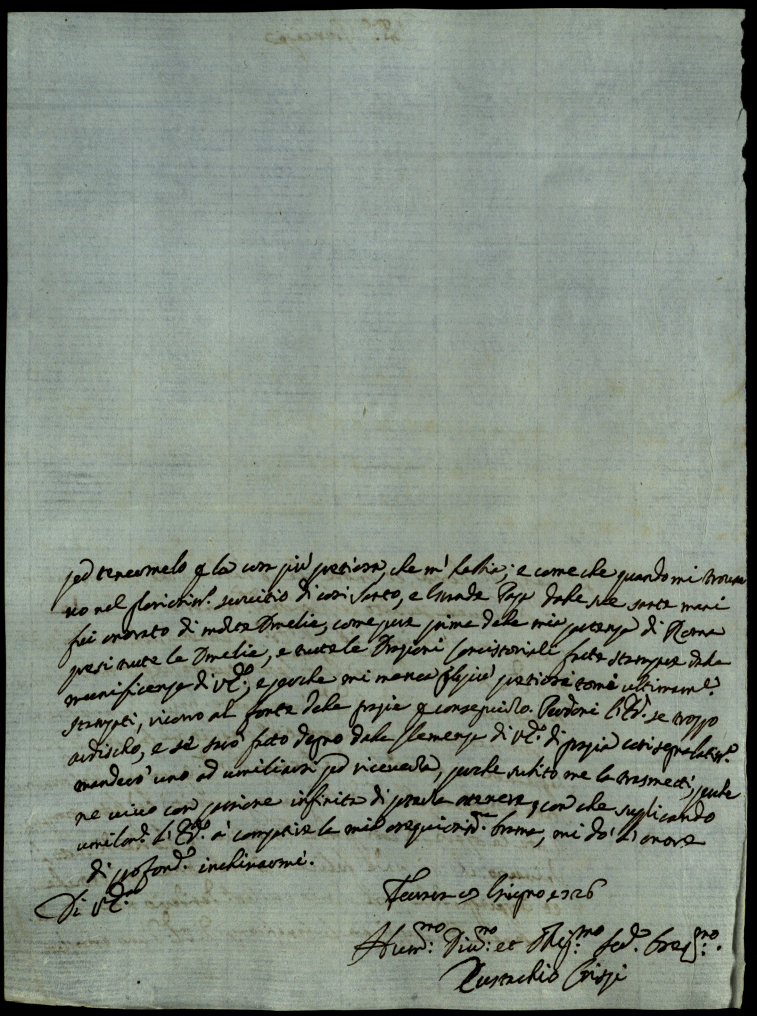 per tenermelo p la cosa più pretiosa, che m' habbia; e come che quando mi trova
vo nel servitio di così Santo, e Grande Papa dalle sue sante mani
fui onorato di molte Omelie, come pure prima della mia partenza di Roma
presi tutte le Omelie, e tutte le Orazioni Concistoriali fatte stampare dalla
munificenza di V. E. e perche mi manca il più pretioso tomo ultimam.e
stampati, ricorro al fonte delle grazie p conseguirlo. Perdoni l'E. V. se troppo
ardischo, e se sarò fatto degno dalla Clemenza di V. E. di grazia così segnalatiss.
manderò uno ad umiliarsi per riceverla, perche subito me la trasmetti, perche
ne vivo con passione infinita di poterla ottenere, con che suplicando
umilm. l'E. V. à compatire la mia brama, mi dò l' onore
di profond. inchinarmi.
Di V. E.
Giugno 1726
Hum.mo Div.mo et Obblig.mo
Eustachio Crispi